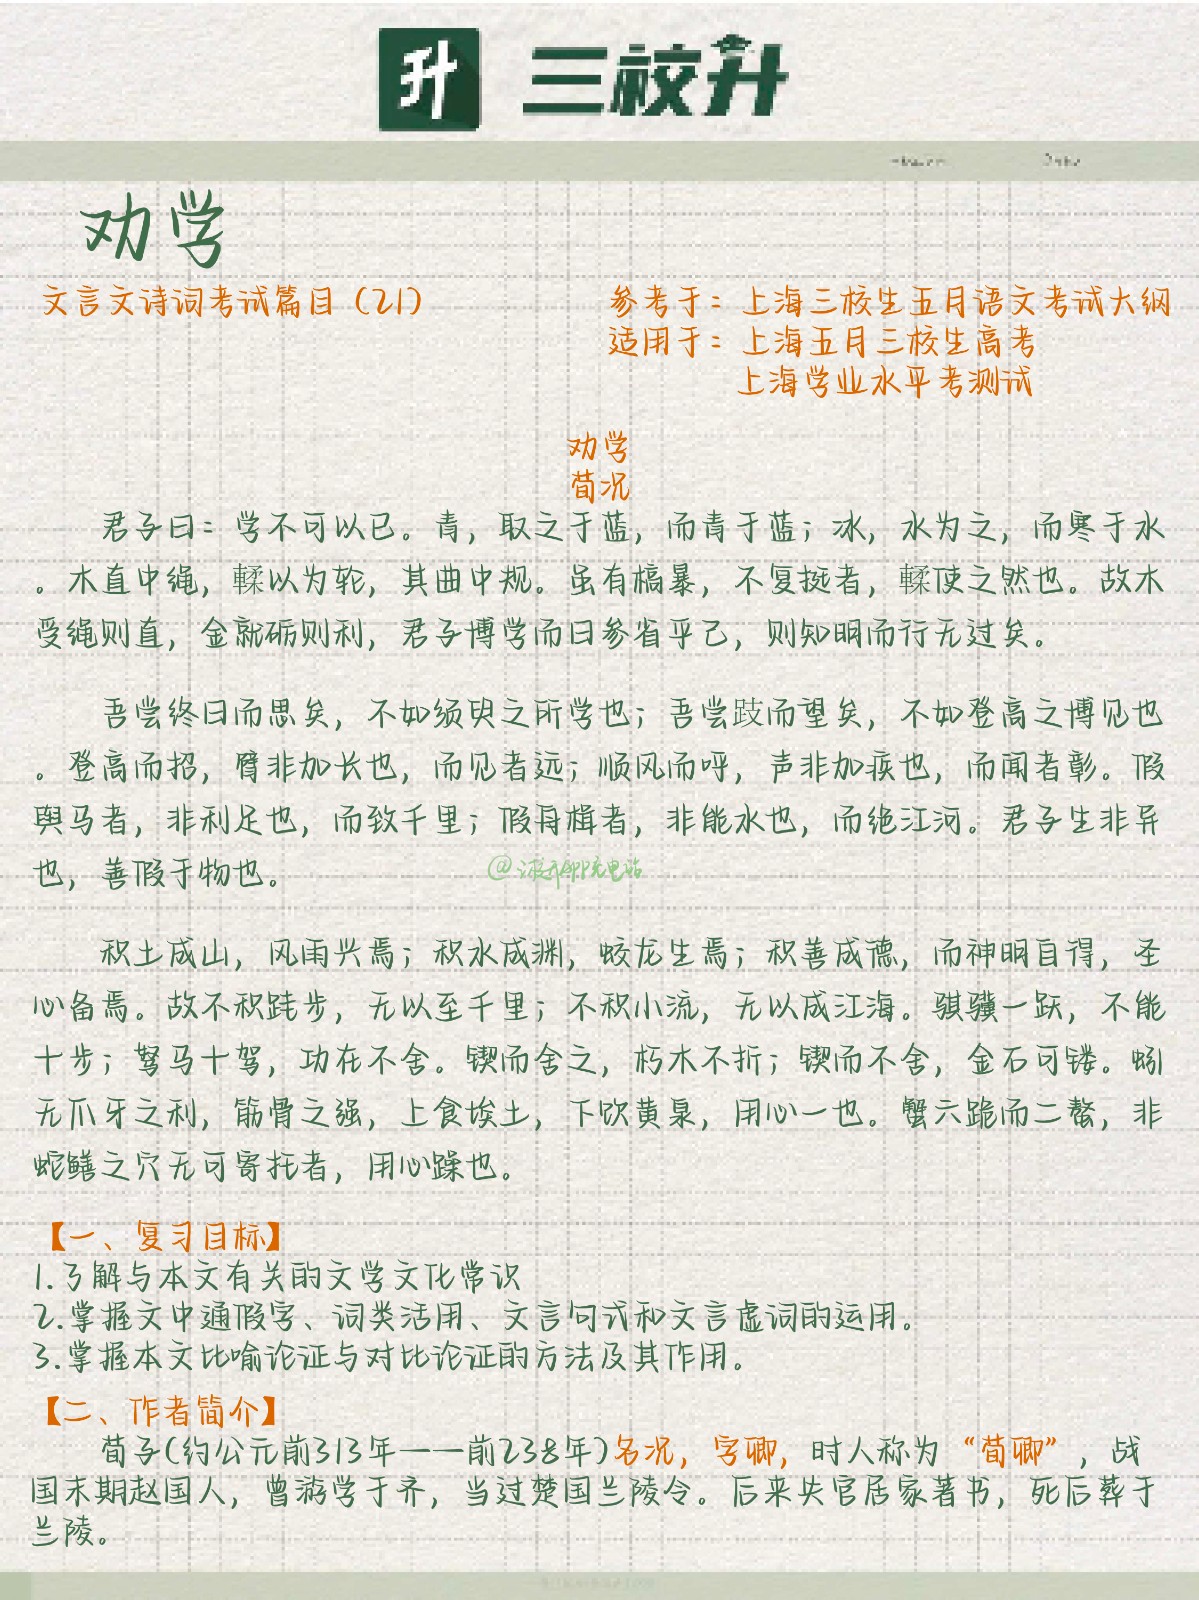 升 三校升
劝学
文言文诗词考试篇目（21）
参考于：上海三校生五月语文考试大纲
适用于：上海五月三校生高考
上海学业水平考测试
劝学
荀况
君子曰：学不可以已。青，取之于蓝，而青于蓝；冰，水为之，而寒于水
。木直中绳，輮以为轮，其曲中规。虽有槁暴，不复挺者，輮使之然也。故木
受绳则直，金就砺则利，君子博学而日参省乎己，则知明而行无过矣。
吾尝终日而思矣，不如须臾之所学也；吾尝跂而望矣，不如登高之博见也
。登高而招，臂非加长也，而见者远；顺风而呼，声非加疾也，而闻者彰。假
舆马者，非利足也，而致千里；假舟楫者，非能水也，而绝江河。君子生非异
也，善假于物也。
积土成山，风雨兴焉；积水成渊，蛟龙生焉；积善成德，而神明自得，圣
心备焉。故不积跬步，无以至千里；不积小流，无以成江海。骐骥一跃，不能
十步；驽马十驾，功在不舍。锲而舍之，朽木不折；锲而不舍，金石可镂。蚓
无爪牙之利，筋骨之强，上食埃土，下饮黄泉，用心一也。蟹六跪而二螯，非
蛇鳝之穴无可寄托者，用心躁也。
【一、复习目标】
1.了解与本文有关的文学文化常识
2.掌握文中通假字、词类活用、文言句式和文言虚词的运用。
3.掌握本文比喻论证与对比论证的方法及其作用。
【二、作者简介】
荀子(约公元前313年——前238年)名况，字卿，时人称为“荀卿”，战
国末期赵国人，曾游学于齐，当过楚国兰陵令。后来失官居家著书，死后葬于
兰陵。